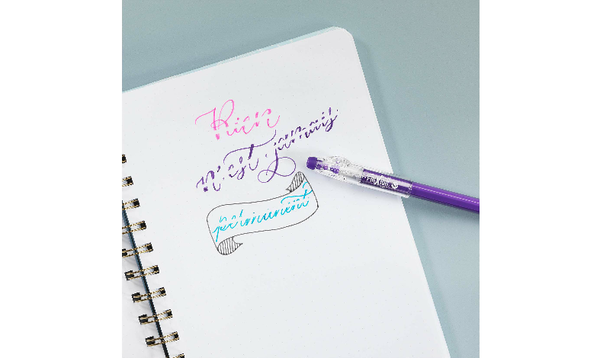 Rien
n'est jamais
permanent